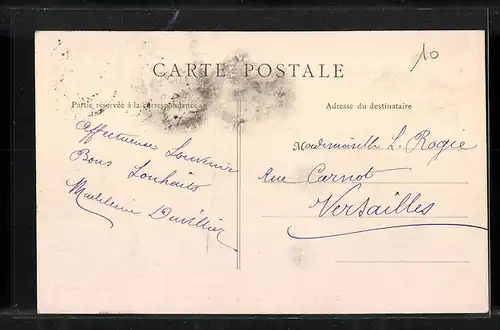 10
CARTE POSTALE
Partie réservée à la correspondance
Adresse du destinataire
Affectueux Souvenir
Bons Souhaits
Madeleine Duvillier
Mademoiselle L. Rogie
Rue Carnot
Versailles